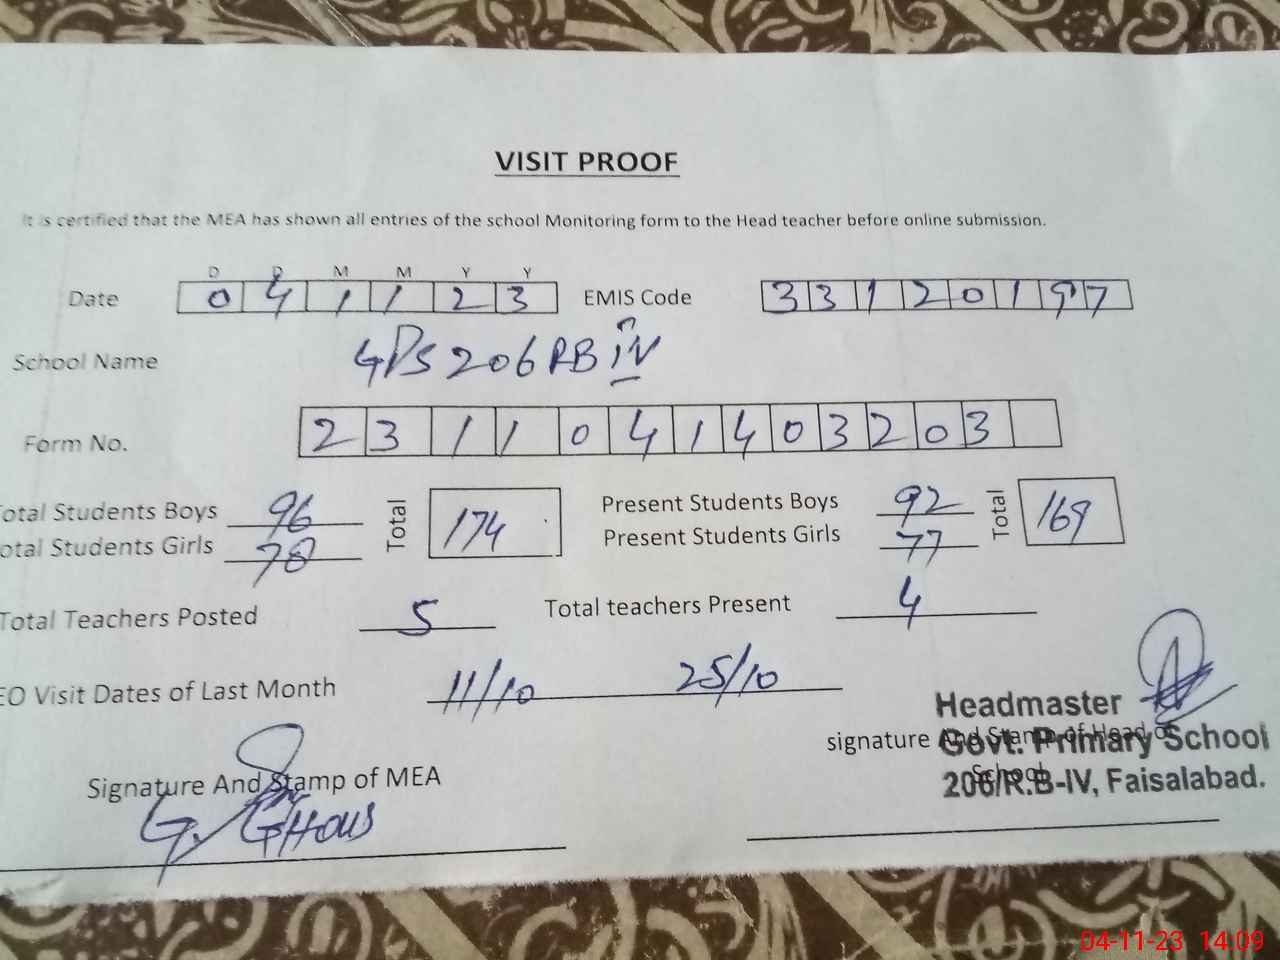 VISIT PROOF
It is certified that the MEA has shown all entries of the school Monitoring form to the Head teacher before online submission.
D D M M Y Y
Date 0 4 1 1 2 3 EMIS Code 3 3 1 2 0 1 9 7
School Name GPS 206 RB IV
Form No. 2 3 1 1 0 4 1 4 0 3 2 0 3
otal Students Boys 96 Total 174 Present Students Boys 92 Total 169
otal Students Girls 78 Present Students Girls 77
Total Teachers Posted 5 Total teachers Present 4
EO Visit Dates of Last Month 11/10 25/10
Headmaster
signature And Stamp of Head of
Govt. Primary School
School
206/R.B-IV, Faisalabad.
Signature And Stamp of MEA
G. GHOUS
04-11-23 14:09